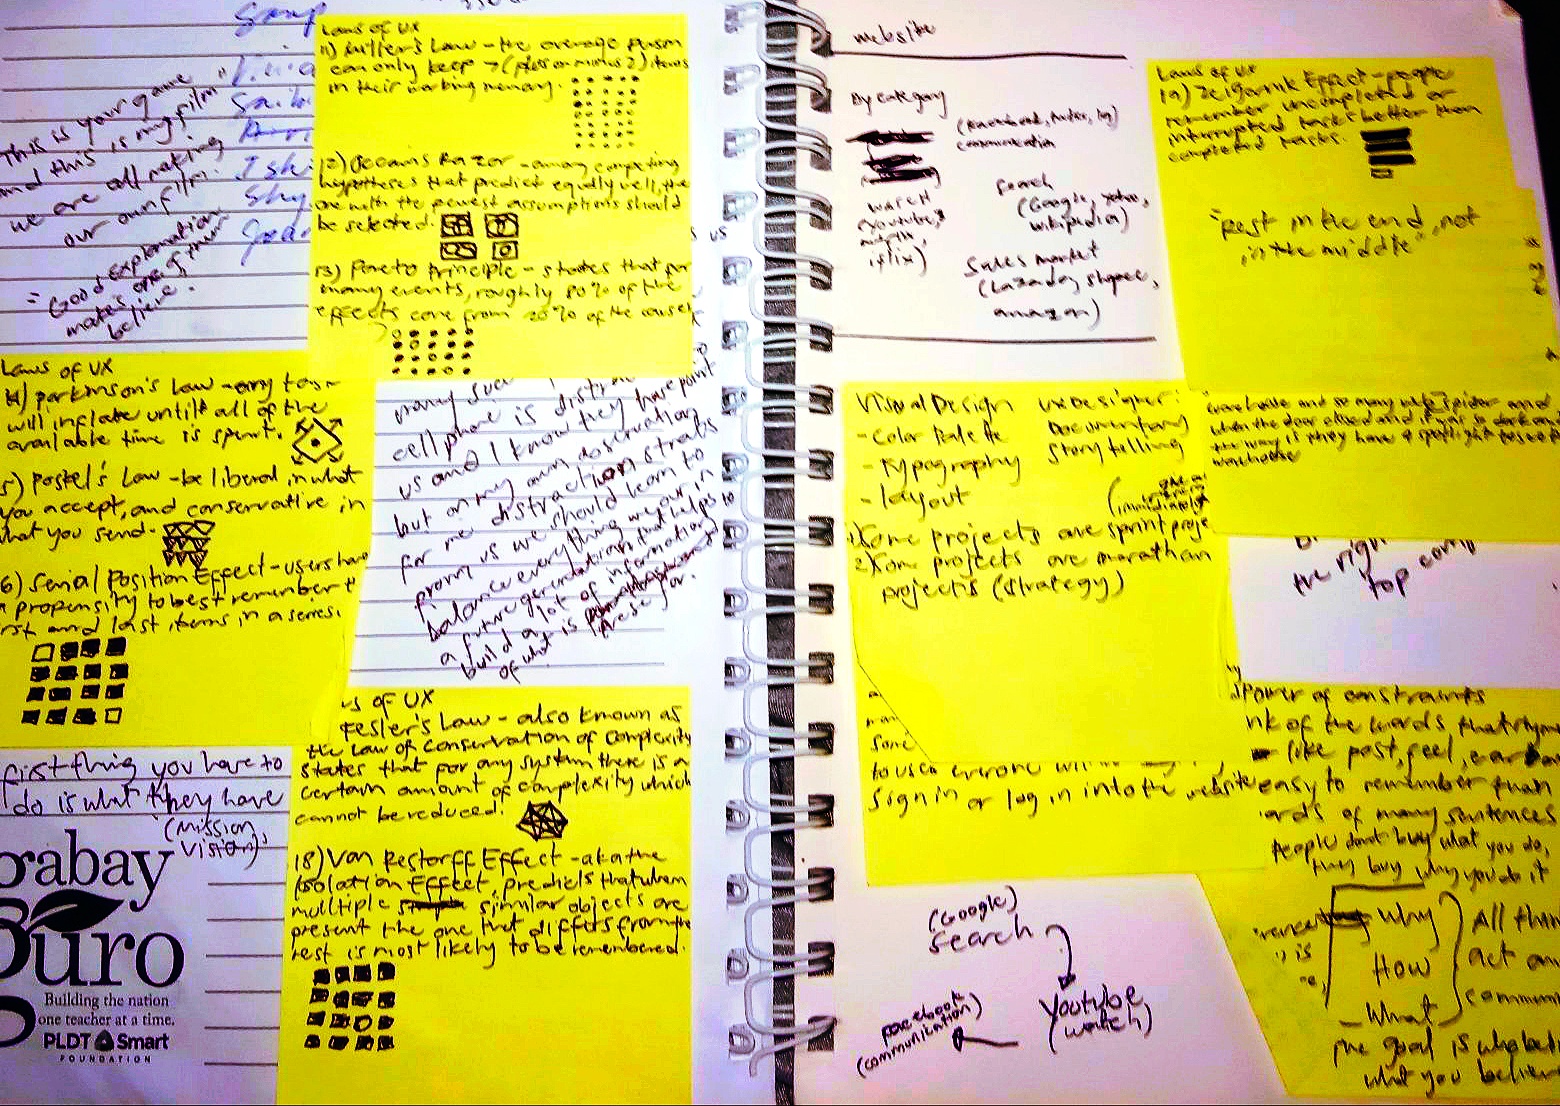 This is your game"
and this is my film
we are all making
our own film.
= Good Explanation
makes one of them
believe.
Laws of UX
11) Miller's Law - the average person
can only keep 7 (plus or minus 2) items
in their working memory.
12) Occams Razor - among competing
hypotheses that predict equally well, the
one with the fewest assumptions should
be selected.
13) Pareto Principle - states that for
many events, roughly 80% of the
effects come from 20% of the causes
Laws of UX
4) Parkinson's Law - any task
will inflate untill all of the
available time is spent.
5) Postel's Law - be liberal in what
you accept, and conservative in
what you send.
6) Serial Position Effect - users have
a propensity to best remember t
first and last items in a series.
many such
cell phone is distra
us and I know they have point
but on my own observation
for me distraction starts
from us we should learn to
balance everything we our in
a future generation that helps to
build a lot of information
of what is
these for.
first thing you have to
do is what they have
(Mission,
Vision)
gabay
guro
Building the nation
one teacher at a time.
PLDT Smart
FOUNDATION
Laws of UX
Tesler's Law - also known as
the law of conservation of complexity
states that for any system there is a
certain amount of complexity which
cannot be reduced.
18) Von Restorff Effect - aka the
Isolation Effect, predicts that when
multiple similar objects are
present the one that differs from the
rest is most likely to be remembered.
website
By category
communication
watch
(youtube,
iflix)
search
(Google, yahoo,
wikipedia)
Sales market
(Lazada, shopee,
amazon)
Laws of UX
19) Zeigarnik Effect - people
remember uncompleted or
interrupted tasks better than
completed tasks.
"Rest in the end, not
in the middle"
Visual Design
- Color Palette
- Typography
- Layout
UX Designer:
Documentary
Story telling
1) Some projects are sprint proje
2) Some projects are marathan
projects (strategy)
warehouse
the righ
top comp
sign in or log in into the website
(Google)
search
Youtube
(watch)
facebook
(communication)
Power of constraints
nk of the words that rhym
like post, feel,
easy to remember than
ords of many sentences
People don't buy what you do,
they buy why you do it
Why
How
What
All thin
act an
communi
The goal is
what you believe